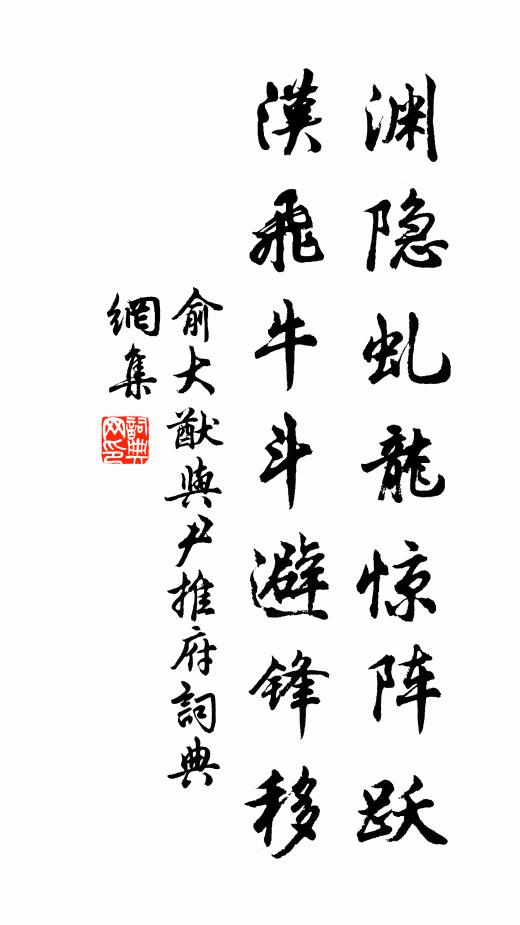 渊隐虬龍惊阵跃
漢飛牛斗避锋移
俞大猷與尹推府詞典
網集
詞典
网印